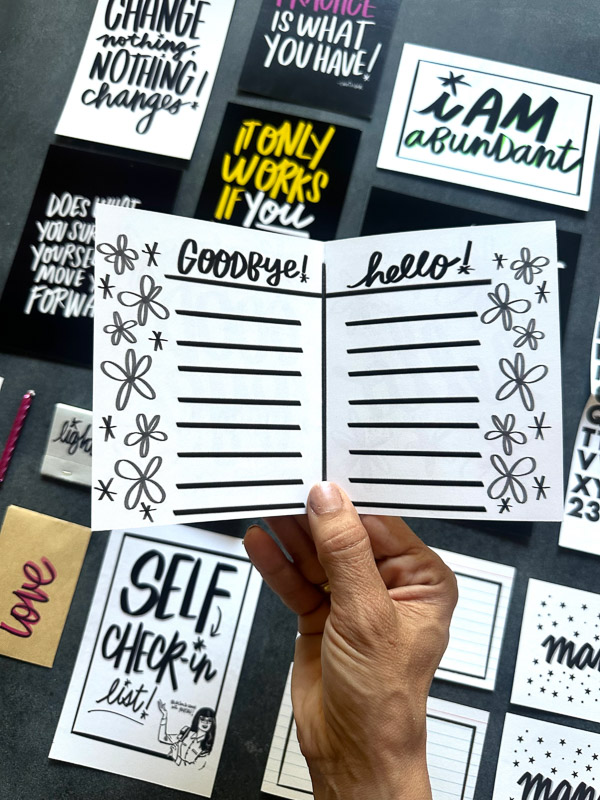 CHANGE
nothing,
NOTHING!
changes*
PRACTICE
IS WHAT
YOU HAVE!
i AM
aBUNDANT
iT ONLY
WORKS
iF You
DOES WHAT
YOU
MOVE
FORWA
GOODBye!
hello!
ligh
love
SELF
CHECK-in
list!
V
XY
23
man
man